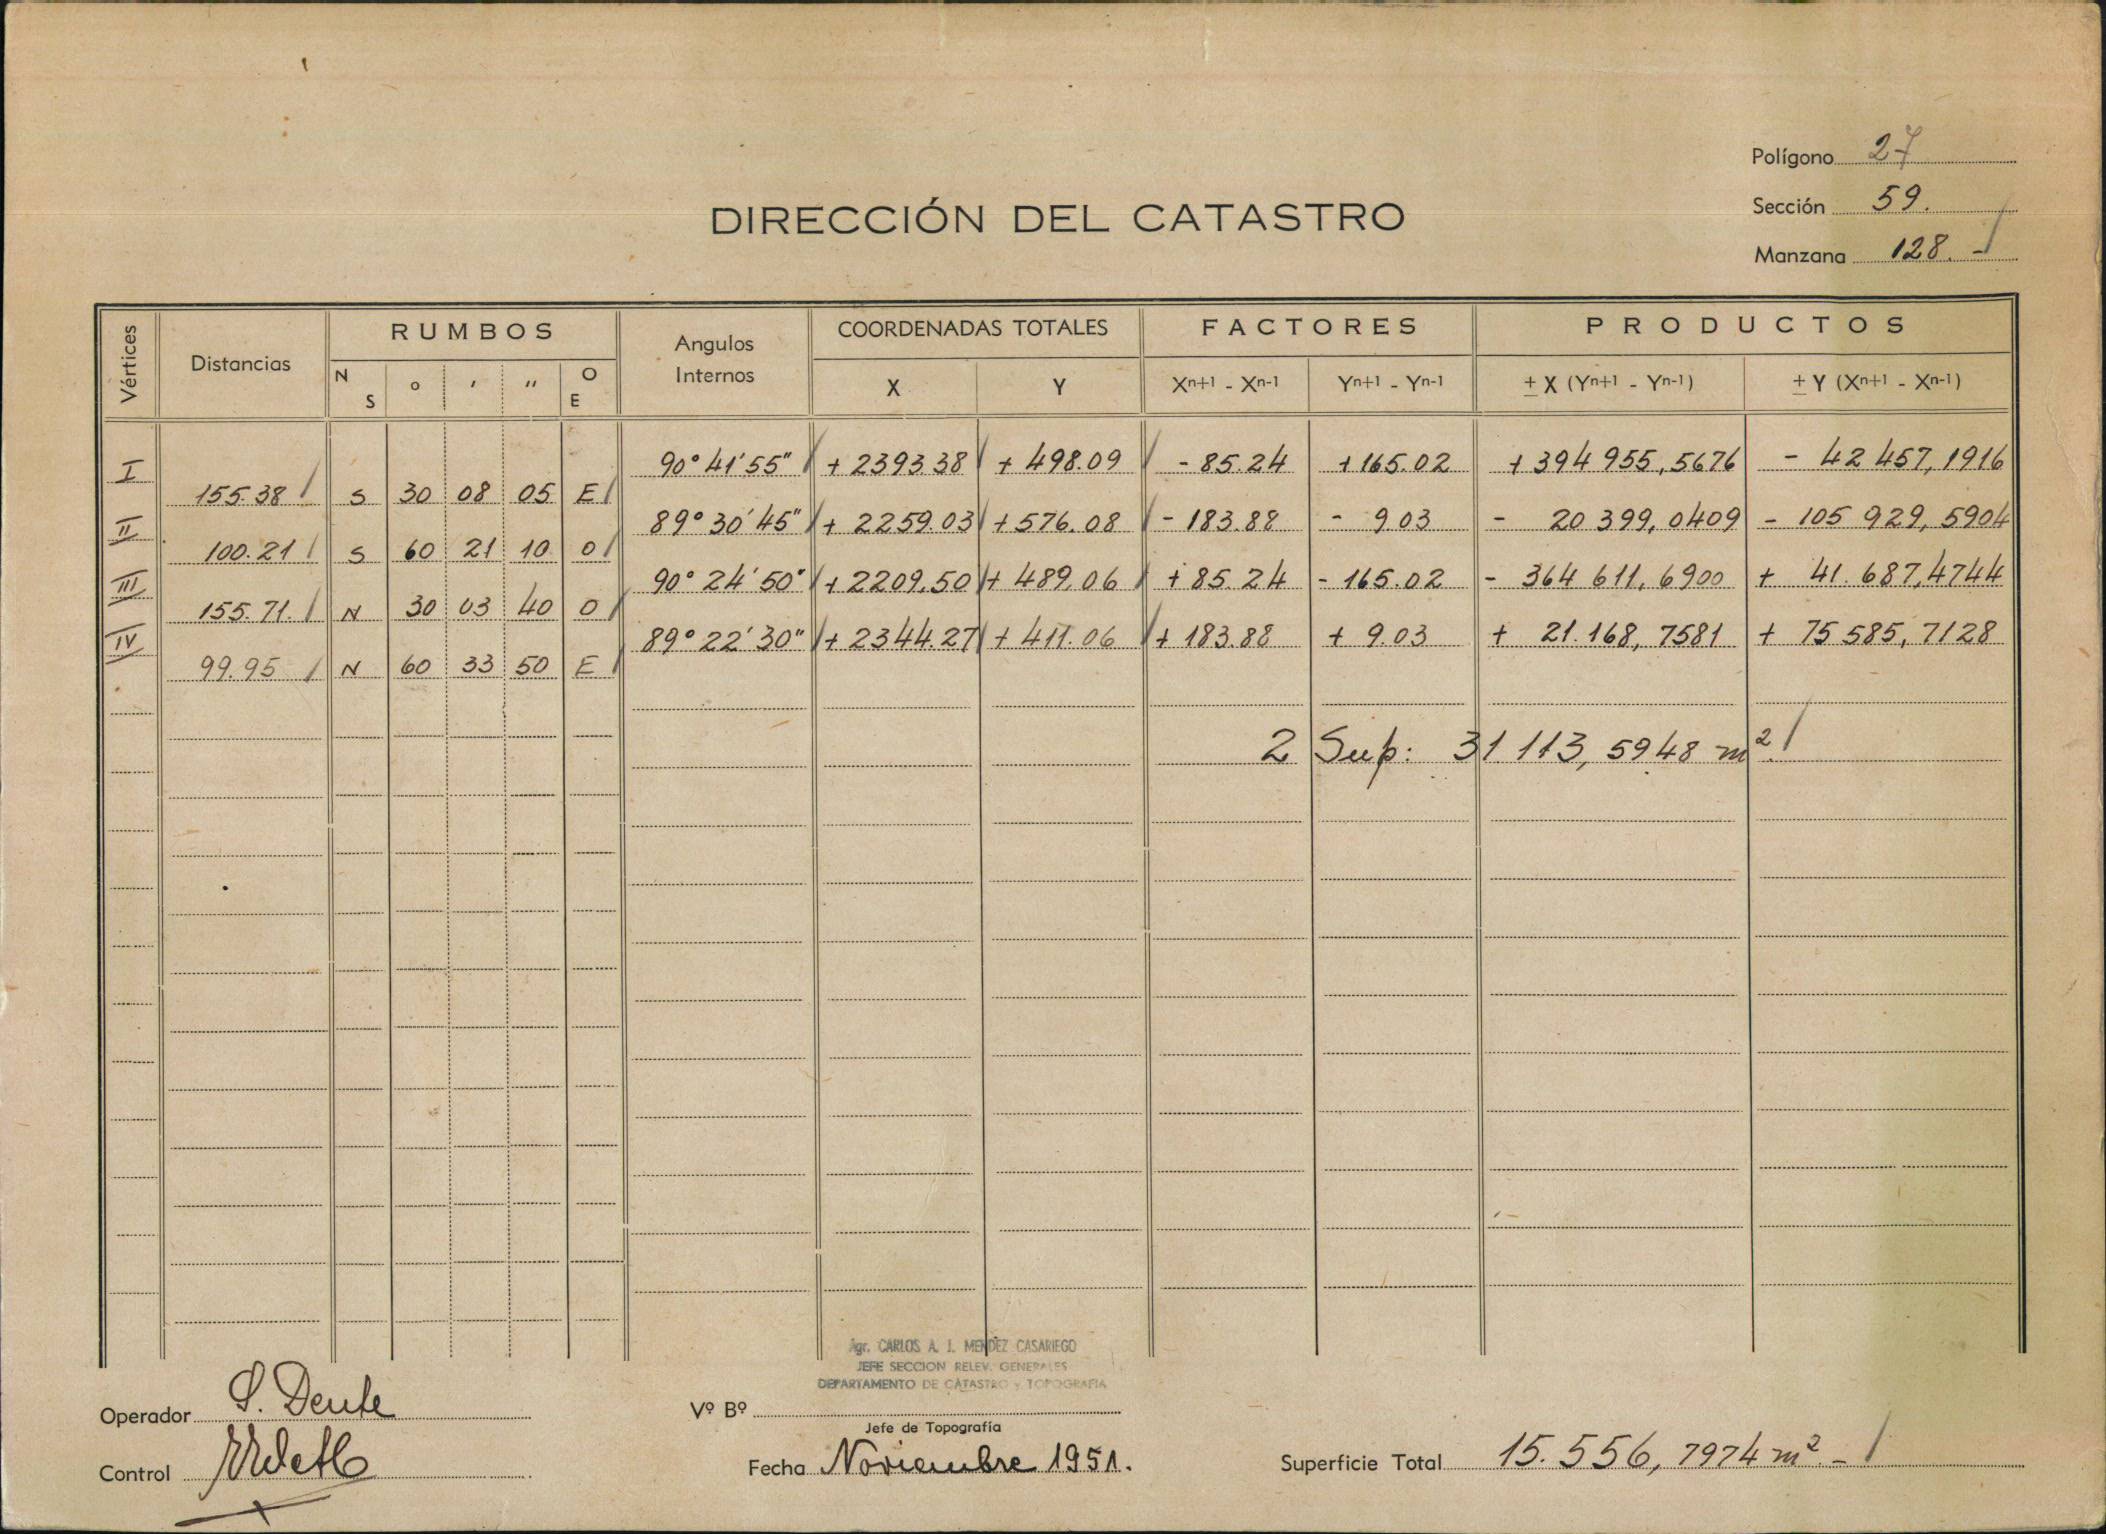 Polígono 27
DIRECCIÓN DEL CATASTRO
Sección 59.
Manzana 128. -
Vértices Distancias RUMBOS Angulos Internos COORDENADAS TOTALES FACTORES PRODUCTOS
N S ° ′ ″ O E X Y Xn+1 - Xn-1 Yn+1 - Yn-1 ± X (Yn+1 - Yn-1) ± Y (Xn+1 - Xn-1)
I 90° 41' 55" + 2393.38 + 498.09 - 85.24 + 165.02 + 394 955,5676 - 42 457,1916
155.38 S 30 08 05 E
II 89° 30' 45" + 2259.03 + 576.08 - 183.88 - 9.03 - 20 399,0409 - 105 929,5904
100.21 S 60 21 10 O
III 90° 24' 50" + 2209.50 + 489.06 + 85.24 - 165.02 - 364 611,6900 + 41.687,4744
155.71. N 30 03 40 O
IV 89° 22' 30" + 2344.27 + 411.06 + 183.88 + 9.03 + 21.168,7581 + 75 585,7128
99.95 N 60 33 50 E
2 Sup: 31 113,5948 m²
Agr. CARLOS A. J. MENDEZ CASARIEGO
JEFE SECCION RELEV. GENERALES
DEPARTAMENTO DE CATASTRO y TOPOGRAFIA
Operador S. Dente
Vº Bº
Jefe de Topografía
Control
Fecha Noviembre 1951.
Superficie Total 15.556,7974 m² -